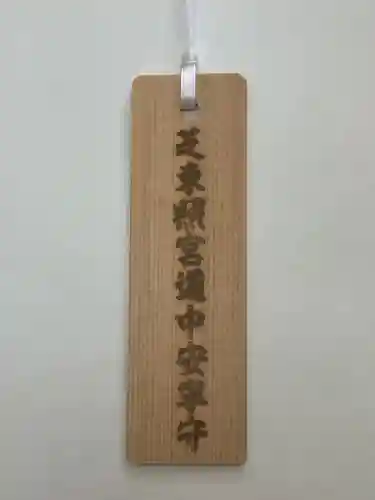 芝東照宮道中安寧守